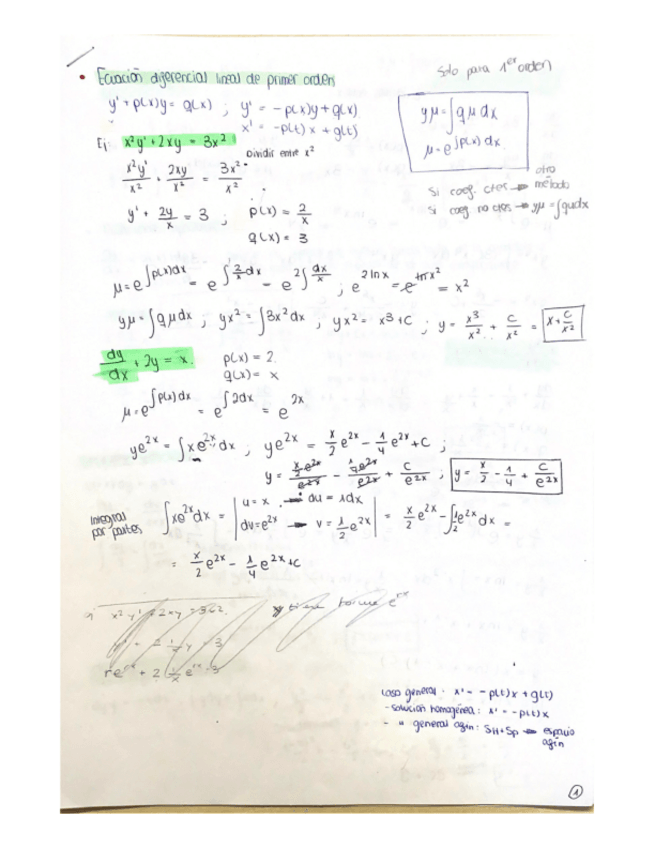 • Ecuación diferencial lineal de primer orden
Solo para 1er orden
y' + p(x)y = q(x) ; y' = -p(x)y + q(x)
x' = -p(t)x + g(t)
yμ = ∫qμdx
μ = e^∫p(x)dx
Ej: x²y' + 2xy = 3x²
Dividir entre x²
x²y'/x² + 2xy/x² = 3x²/x²
Si coef. ctes → otro método
Si coef no ctes → yμ = ∫qμdx
y' + 2y/x = 3 ; p(x) = 2/x
q(x) = 3
μ = e^∫p(x)dx = e^∫2/x dx = e^2∫dx/x ; e^2lnx = e^lnx² = x²
yμ = ∫qμdx ; yx² = ∫3x²dx ; yx² = x³ + C ; y = x³/x² + C/x² = x + C/x²
dy/dx + 2y = x
p(x) = 2
q(x) = x
μ = e^∫p(x)dx = e^∫2dx = e^2x
ye^2x = ∫xe^2x dx ; ye^2x = x/2 e^2x - 1/4 e^2x + C ;
y = x/2 e^2x/e^2x - 1/4 e^2x/e^2x + C/e^2x ; y = x/2 - 1/4 + C/e^2x
Integral por partes
∫xe^2x dx = | u = x → du = 1dx
dv = e^2x → v = 1/2 e^2x | = x/2 e^2x - ∫1/2 e^2x dx =
= x/2 e^2x - 1/4 e^2x + C
x²y' + 2xy = 3x²
tiene forma e^rx
Caso general: x' = -p(t)x + g(t)
- Solución homogénea: x' = -p(t)x
- " general afín: SH + Sp → espacio afín
1